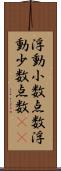 浮動小数点数浮
動少数点数